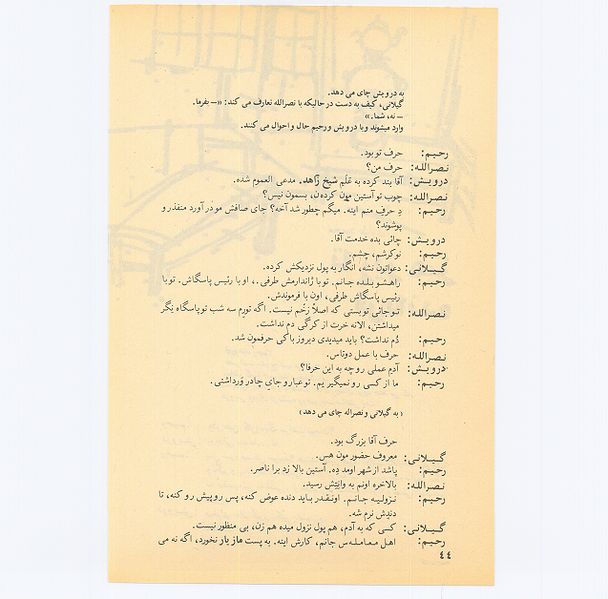 به درویش چای می دهد.
گیلانی، کیف به دست در حالیکه با نصرالله تعارف می کند: «– بفرما.
– نه، شما.»
وارد میشوند و با درویش و رحیم حال و احوال می کنند.
رحیم: حرف تو بود.
نصرالله: حرف من؟
درویش: آقا بند کرده به عَلَم شیخ زاهد. مدعی العموم شده.
نصرالله: چوب تو آستین مون کردهن، بسمون نیس؟
رحیم: دِ حرفِ منم اینه. میگم چطور شد آخه؟ جای صافش مو در آورد منفذر و
پوشوند؟
درویش: چائی بده خدمت آقا.
رحیم: نوکرشم، چشم.
گیلانی: دعواتون نشه، انگار به پول نزدیکش کرده.
رحیم: راهشو بلده جانم. تو با ژاندارمش طرفی، او با رئیس پاسگاش. تو با
رئیس پاسگاش طرفی، اون با فرموندش.
نصرالله: تو جائی تو بستی که اصلاً زخم نیست. اگه تورم سه شب تو پاسگاه نِگر
میداشتن، الانه خرت از کرگی دم نداشت.
رحیم: دُم نداشت؟ باید میدیدی دیروز با کی حرفمون شد.
نصرالله: حرف با عمل دوتاس.
درویش: آدم عملی رو چه به این حرفا؟
رحیم: ما از کسی رو نمیگیر یم. تو عبارو جایِ چادر وَرداشتی.
(به گیلانی و نصراله چای می دهد)
حرف آقا بزرگ بود.
گیلانی: معروف حضور مون هس.
رحیم: پاشد از شهر اومد دِه. آستین بالا زد برا ناصر.
نصرالله: بالاخره اونم به وایَتِش رسید.
رحیم: نزولیه جانم. اونقدر باید دنده عوض کنه، پس رو پیش رو کنه، تا
دندِش نرم شه.
گیلانی: کسی که به آدم، هم پول نزول میده هم زن، بی منظور نیست.
رحیم: اهل معامله س جانم، کارش اینه. به پست هاز یار نخورد، اگه نه می
٤٤